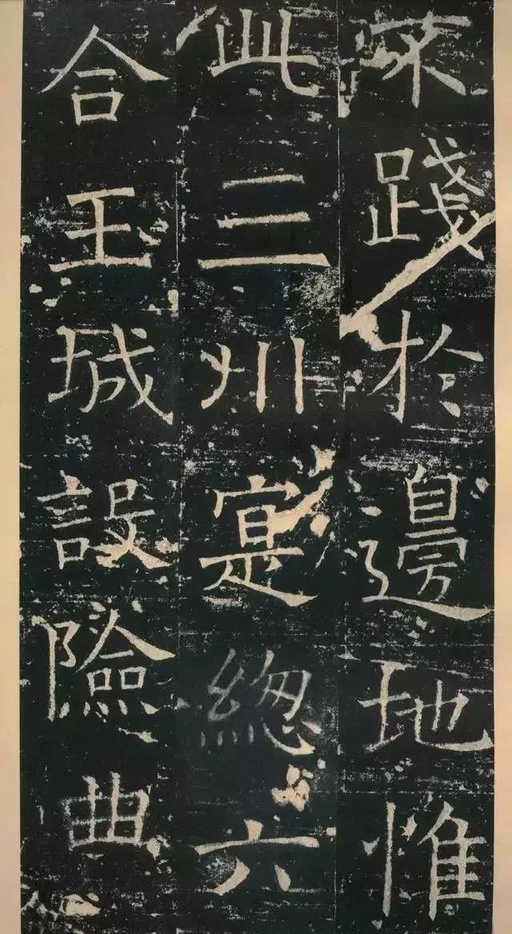 來踐於邊地惟
此三州寔總六
合王城設險曲